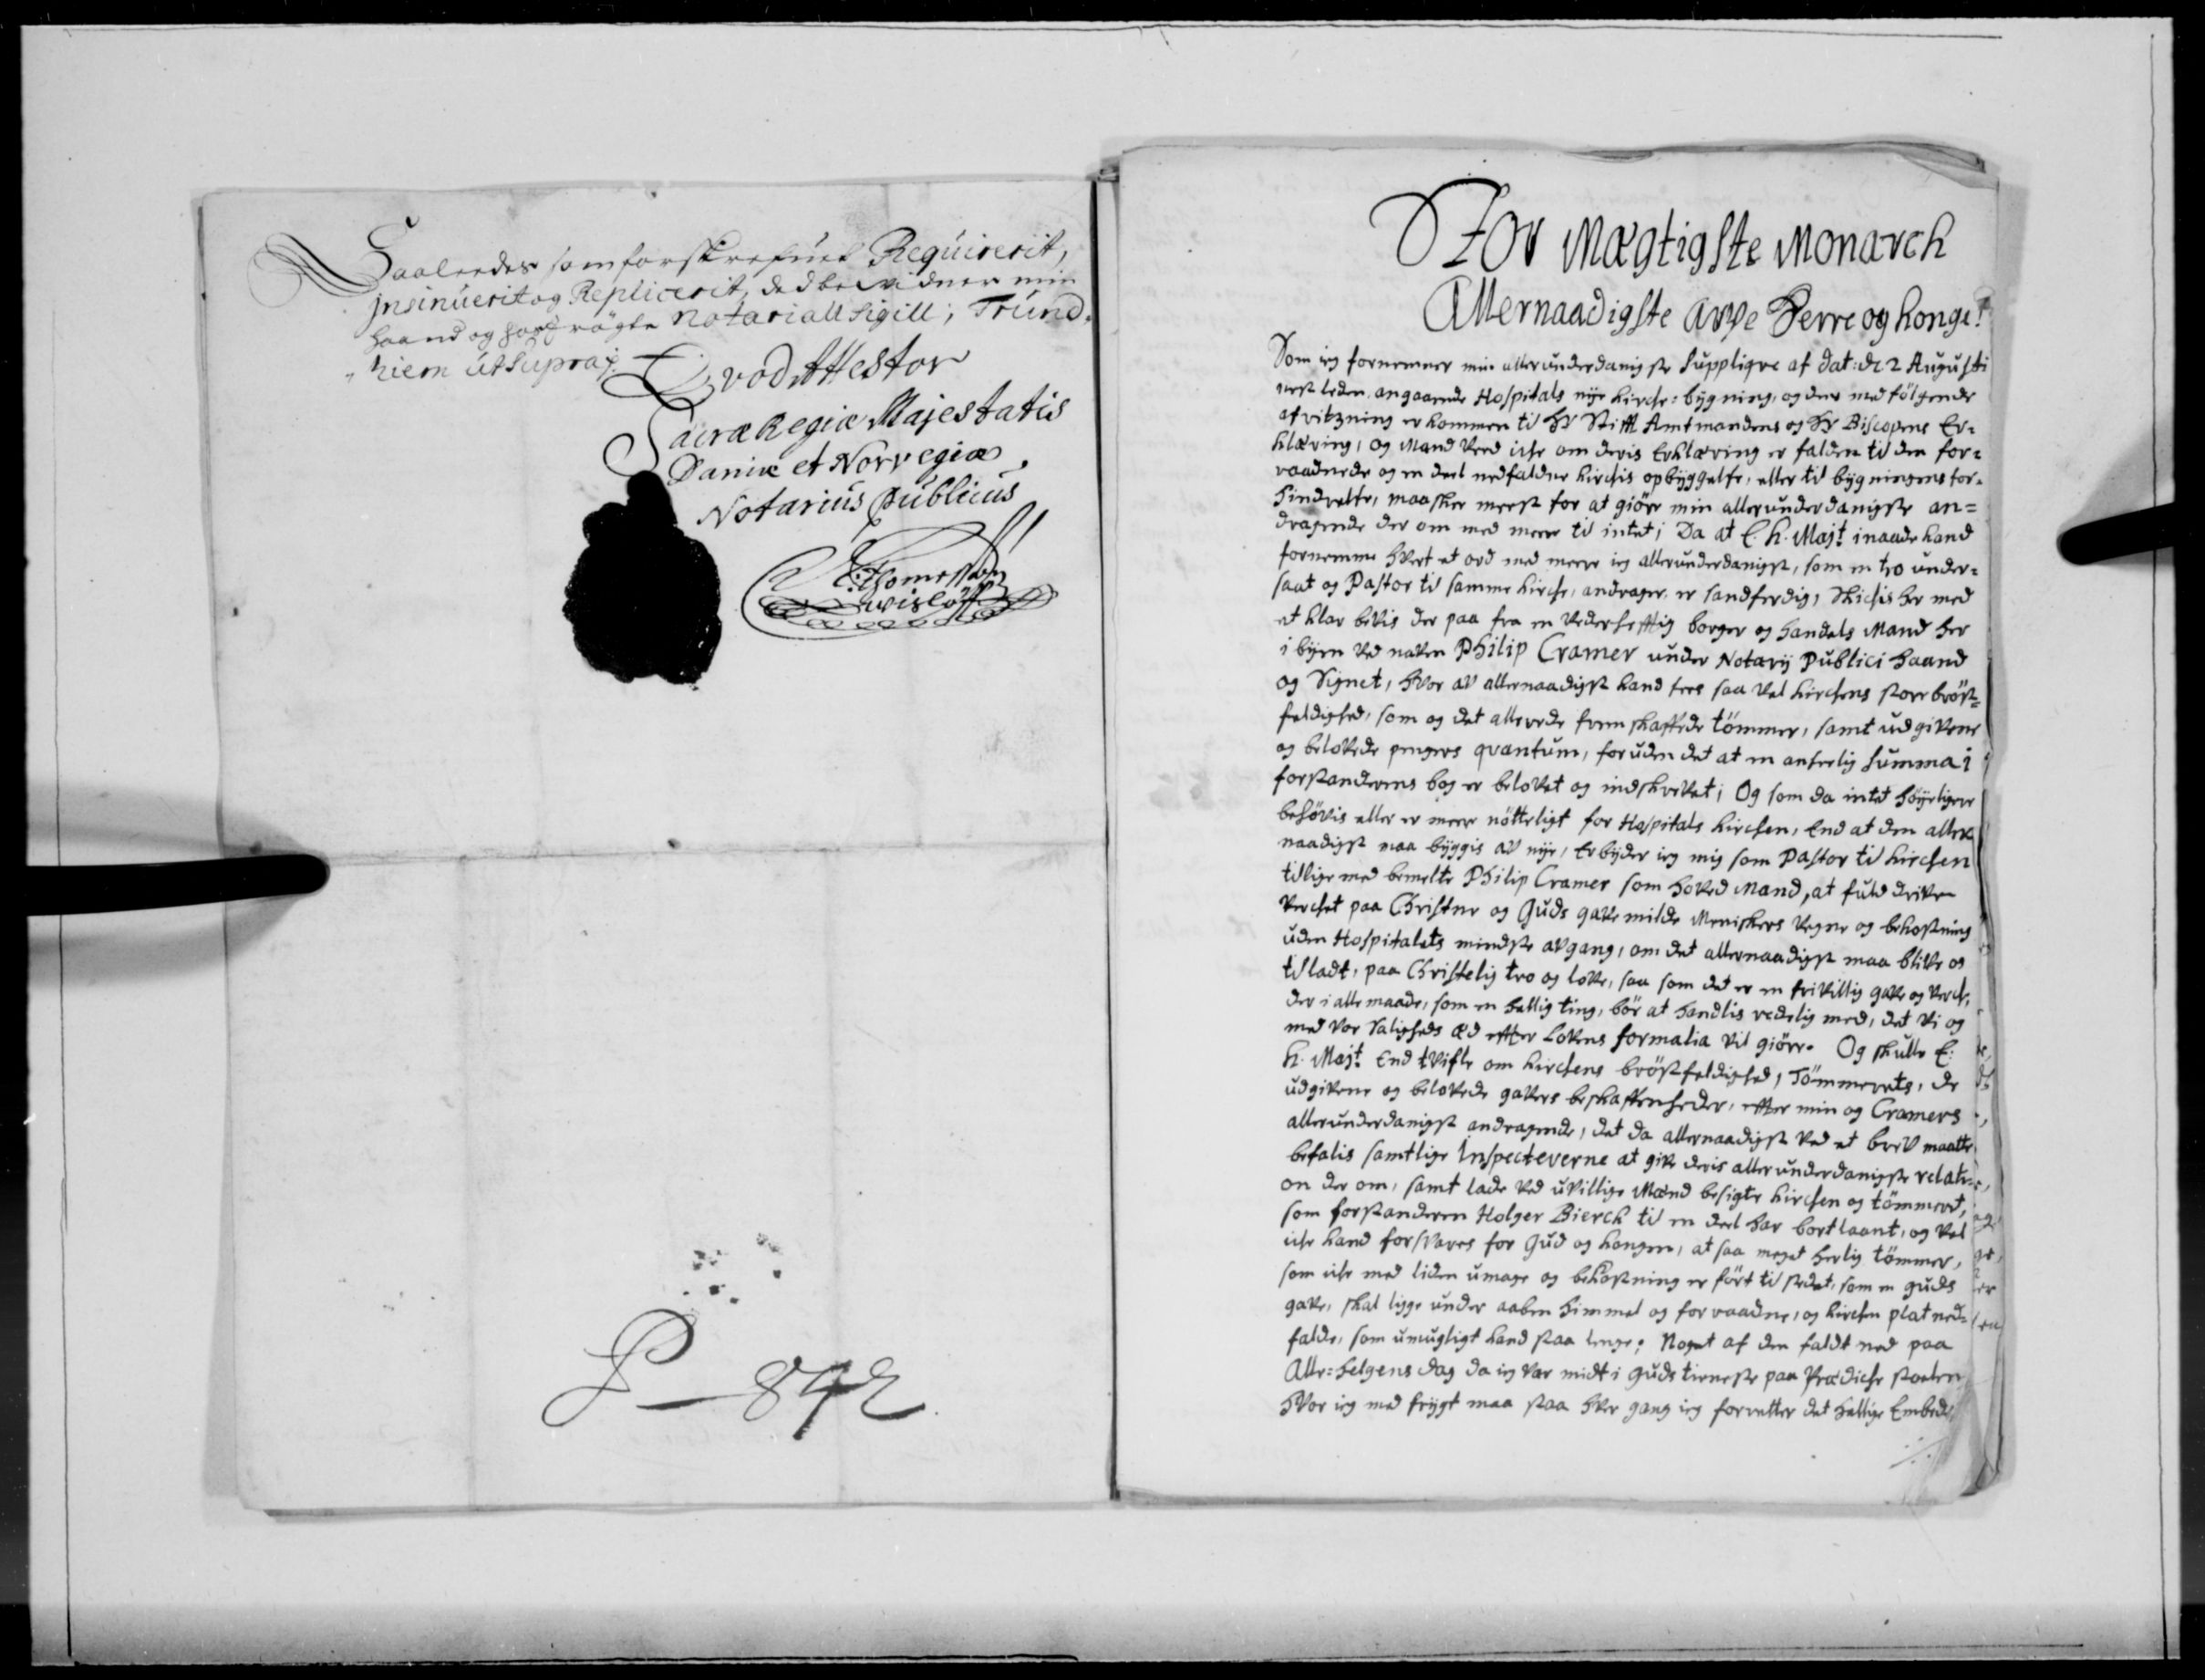 Saaleedes som forskrefuet Requirerit,
jnsinuerit og Replicerit, ded bevidner min
haand og hos trögte Notariall Sigill; Trund,,
,,hiem ut supra
Qvod Attestor
Sacræ Regiæ Majestatis
Daniæ et Norvegiæ
Notarius Publicus
Thomessøn
Wislöff
P 842
StorMægtigste Monarch
Allernaadigste Arve Herre og Konge!
Som ieg fornemmer min allerunderdanigste Supplique af dat: d: 2 Augusti
nest leden angaaende Hospitals nye Kirche-bygning, og dens medfölgende
afvitzning er kommen til Hr Stifft Amtmandens og Hr Biscopens Er-
klæring, og Mand veed iche om deris Erklæring er falden til den for-
raadnede og en deel nedfaldne Kirchis opbyggelse, eller til bygningens for-
hindrelse, maaskee meest for at giöre min allerunderdanigste an-
dragende der om med meere til intet; Da at E. K. Majt. i naade kand
fornemme hvert et ord med meere ieg allerunderdanigst, som en tro under-
saat og Pastor til samme Kirche, andrager, er sandferdig, Skichis her med
et klar bevis der paa fra en vederhefftig borger og handels Mand her
i byen ved naven Philip Cramer under Notarij Publici haand
og Signet, hvor av allernaadigst kand sees saa vel kirchens store bröst-
feldighed, som og det allerede fremskaffede tömmer, samt udgivene
og belovede pengers qvantum, foruden det at en anseelig Summa i
forstanderens bog er belovet og indskrevet; Og som da intet höyeligere
behövis eller er meere nötteligt for Hospitals Kirchen, End at den aller-
naadigst maa byggis av nye, Erbyder ieg mig som Pastor til kirchen
tillige med bemelte Philip Cramer som hoved Mand, at fuld drive
Verchet paa Christne og Guds gavemilde Menniskers Vegne og bekostning
uden Hospitalets mindste avgang, om det allernaadigst maa blive os
tilladt, paa Christelig tro og love, saa som det er en frivillig gave og Verch,
der i alle maade, som en hellig ting, bör at handlis redelig med, det Vi og
med vor Saligheds æd effter Lovens formalia vil giöre. Og skulle E:
K. Majt. End tvifle om kirchens bröstfeldighed, Tömmerets, de
udgivene og belovede gavers beskaffenheder, effter min og Cramers
allerunderdanigst andragende, det da allernaadigst ved et brev maatte
befalis samtlige Inspecteuerne at give deris allerunderdanigste relati-
on der om, samt lade ved uvillige Mænd besigte kirchen og tömmeret,
som forstanderen Holger Bierch til en deel har bortlaant, og vel
iche kand forsvares for Gud og kongen, at saa meget herlig tömmer,
som iche med liden umage og bekostning er fört til stedet, som en Guds
gave, skal ligge under aaben himmel og forraadne, og kirchen plat ned-
falde, som umugligt kand staa lenge; Noget af den faldt ned paa
Alle-helgens dag da ieg var midt i Guds tieneste paa Prædiche stoelen
hvor ieg med frygt maa staa hver gang ieg forretter det hellige Embede